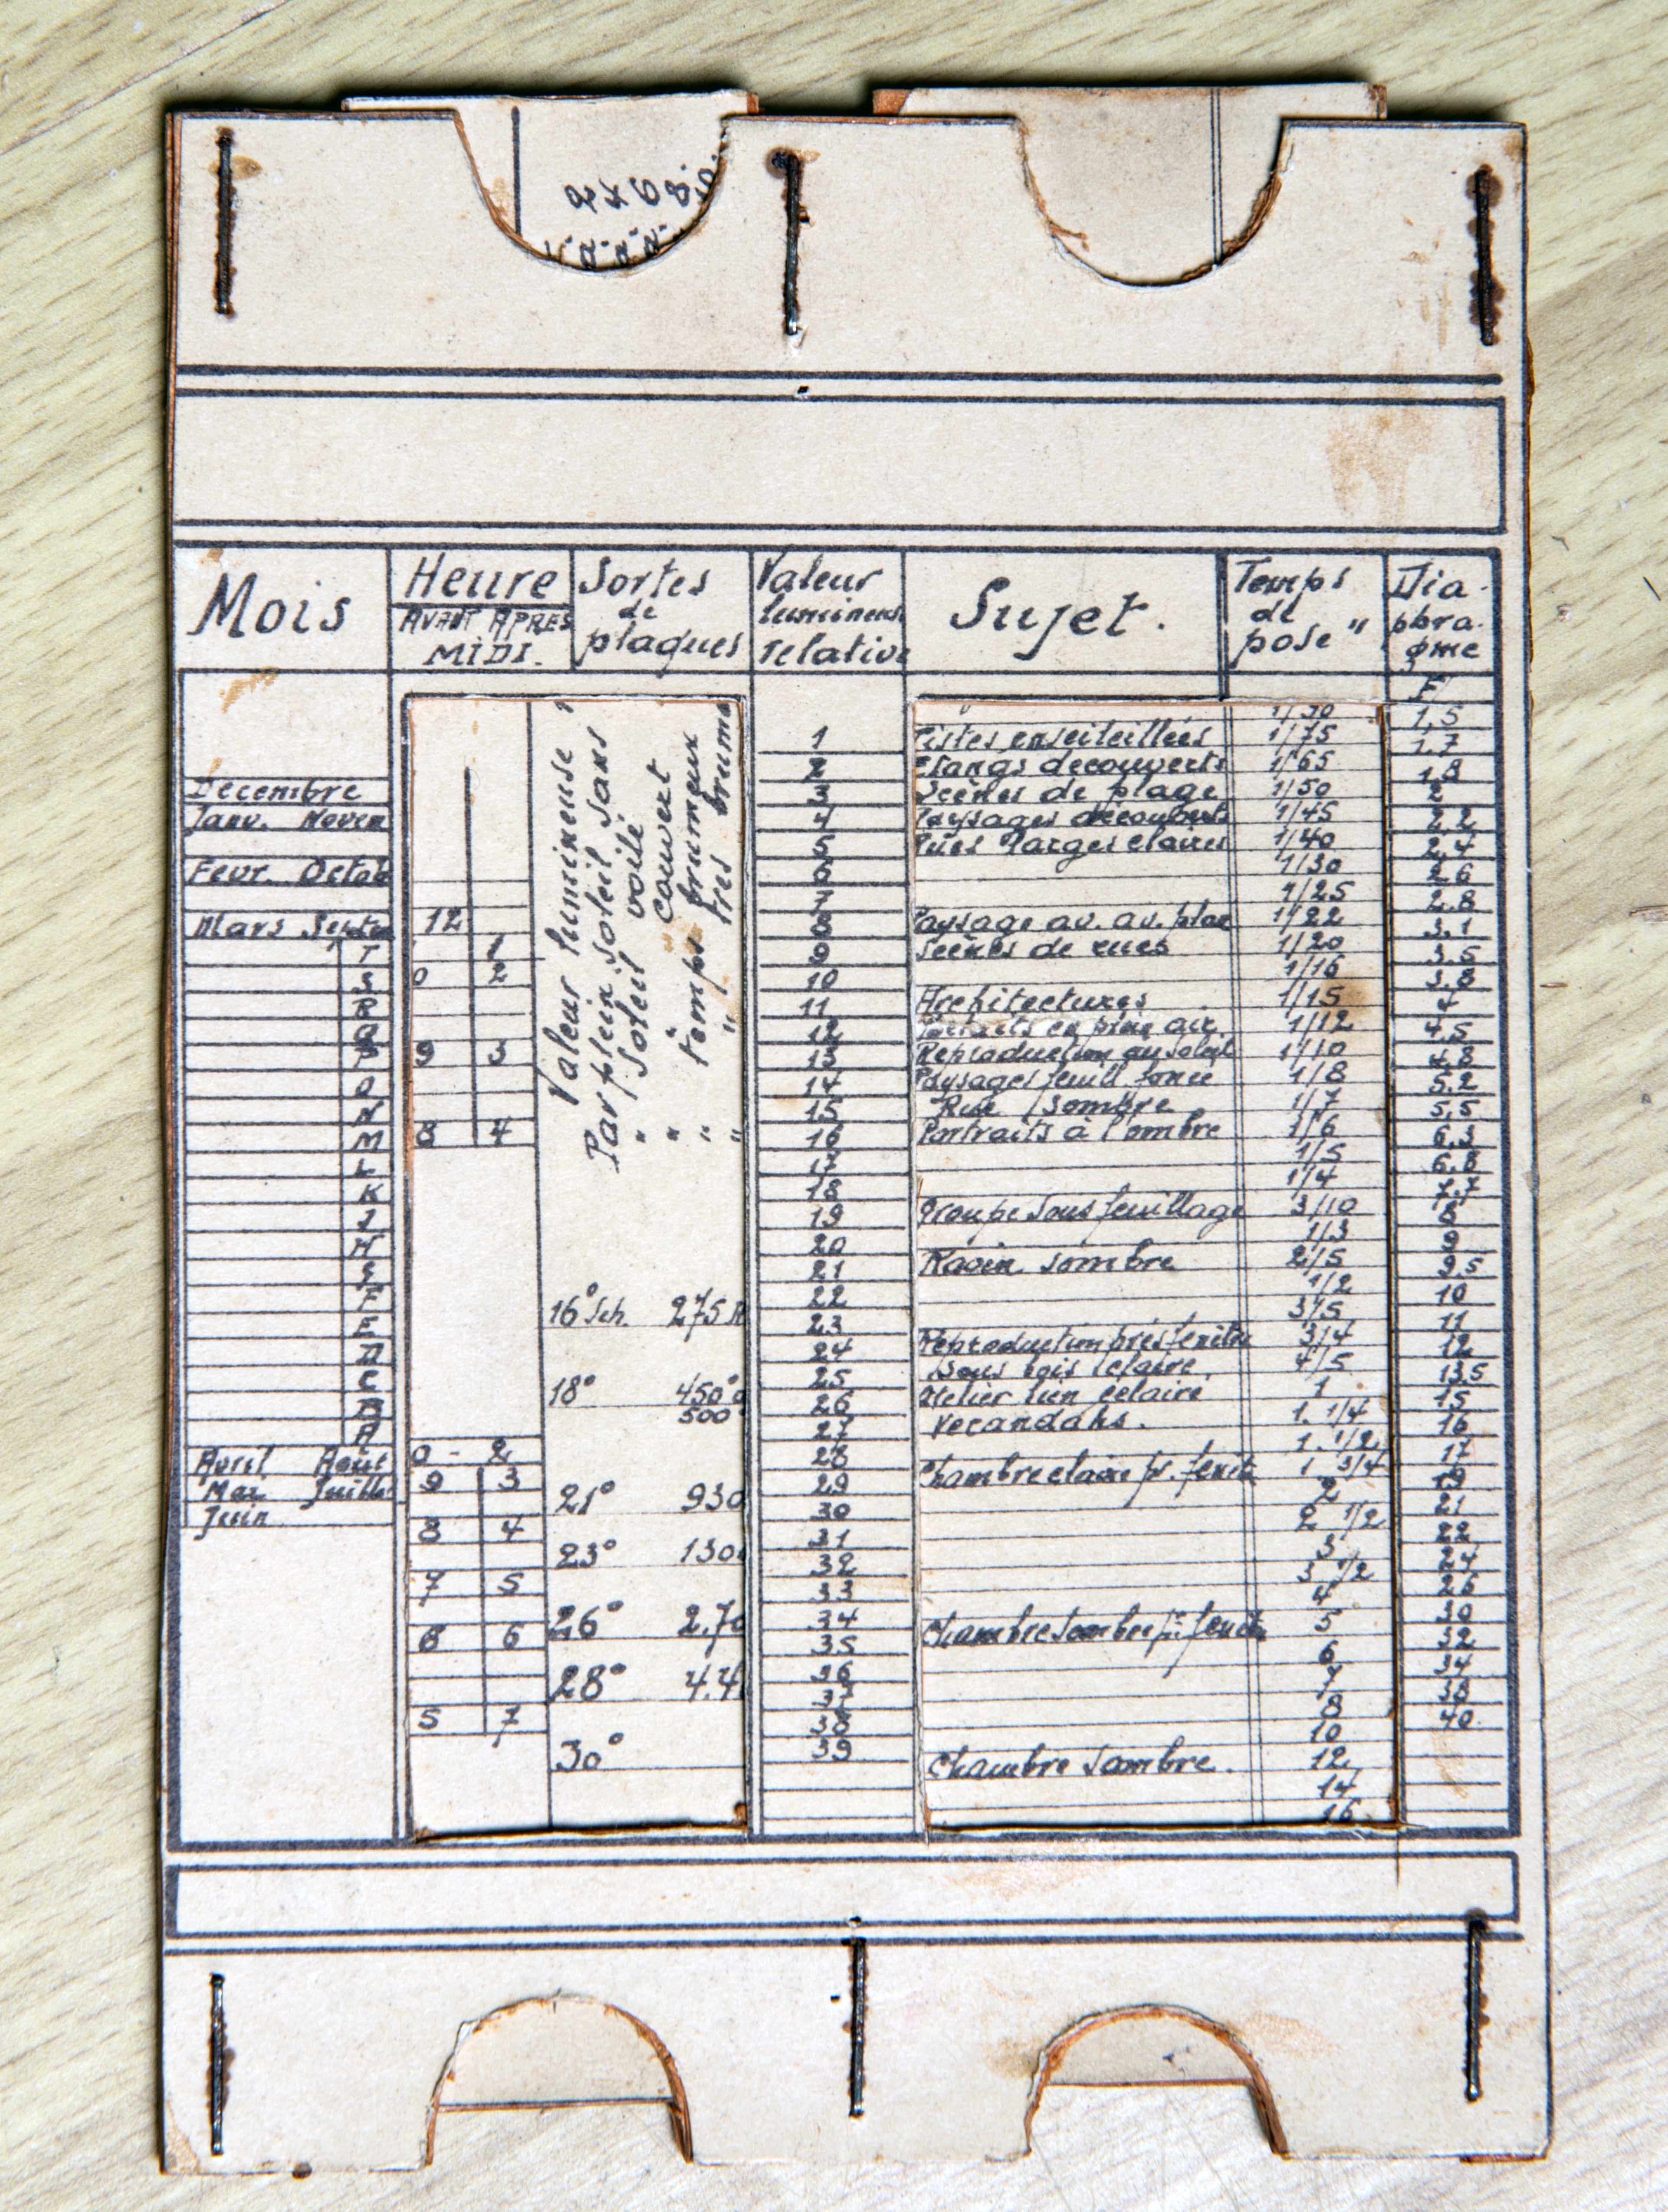 Mois
Heure
AVANT APRES
MIDI.
Sortes
de
plaques
Valeur
lumineus.
relative
Sujet.
Temps
de
pose "
Dia-
phra-
gme
F
Decembre
Janv. Novem
Fevr. Octob
Mars Septem
T
S
R
Q
P
O
N
M
L
K
J
H
G
F
E
D
C
B
A
Avril Août
Mai Juillet
Juin
12
1
0 2
9 3
8 4
0 - 2
9 3
8 4
7 5
6 6
5 7
Valeur lumineuse
Par plein soleil sans
" Soleil voilé
" couvert
" temps brumeux
" " très brume
16° Sch. 275 H
18° 450°
500°
21° 930
23° 130
26° 2.7
28° 4.4
30°
1
2
3
4
5
6
7
8
9
10
11
12
13
14
15
16
17
18
19
20
21
22
23
24
25
26
27
28
29
30
31
32
33
34
35
36
37
38
39
Pistes enseileillées
Etangs decouverts
Scènes de plage
Paysages découverts
Rues larges claires
Paysage av. av. plan
Scènes de rues
Architectures
Portraits en plein air.
Reproduction au soleil
Paysages feuill. foncé
Rue sombre
Portraits à l'ombre
Groupe sous feuillage
Ravin sombre
Reproduction près fenêtre
Sous bois claire
Atelier bien eclairé
Verandahs.
Chambre claire pr. fenêt.
Chambre sombre pr. fenêt.
Chambre sombre.
1/75
1/65
1/50
1/45
1/40
1/30
1/25
1/22
1/20
1/16
1/15
1/12
1/10
1/8
1/7
1/6
1/5
1/4
3/10
1/3
2/5
1/2
3/5
3/4
4/5
1
1. 1/4
1. 1/2
1 3/4
2
2 1/2
3
3 1/2
4
5
6
7
8
10
12
14
16
1,5
1.7
1,8
2
2,2
2,4
2,6
2.8
3.1
3.5
3.8
4
4.5
4.8
5.2
5.5
6.3
6.8
7.7
8
9
9.5
10
11
12
13.5
15
16
17
19
21
22
24
26
30
32
34
38
40